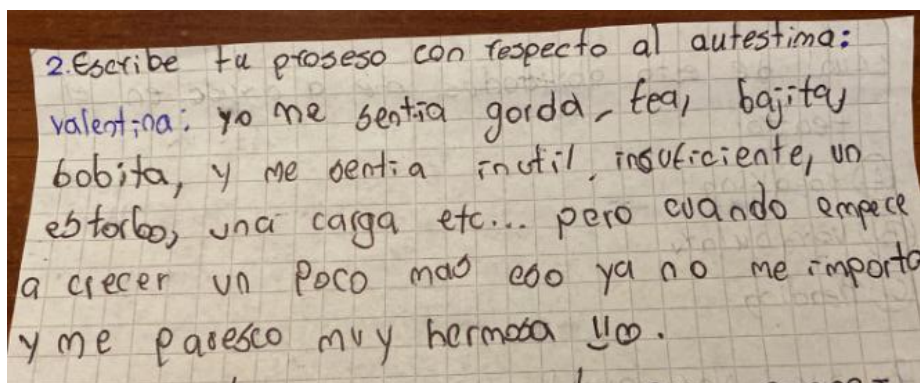 2. Escribe tu proseso con respecto al autestima:
valentina: yo me sentia gorda, fea, bajita,
bobita, y me sentia inutil, insuficiente, un
estorbo, una carga etc... pero cuando empece
a crecer un poco mas eso ya no me importo
y me paresco muy hermosa